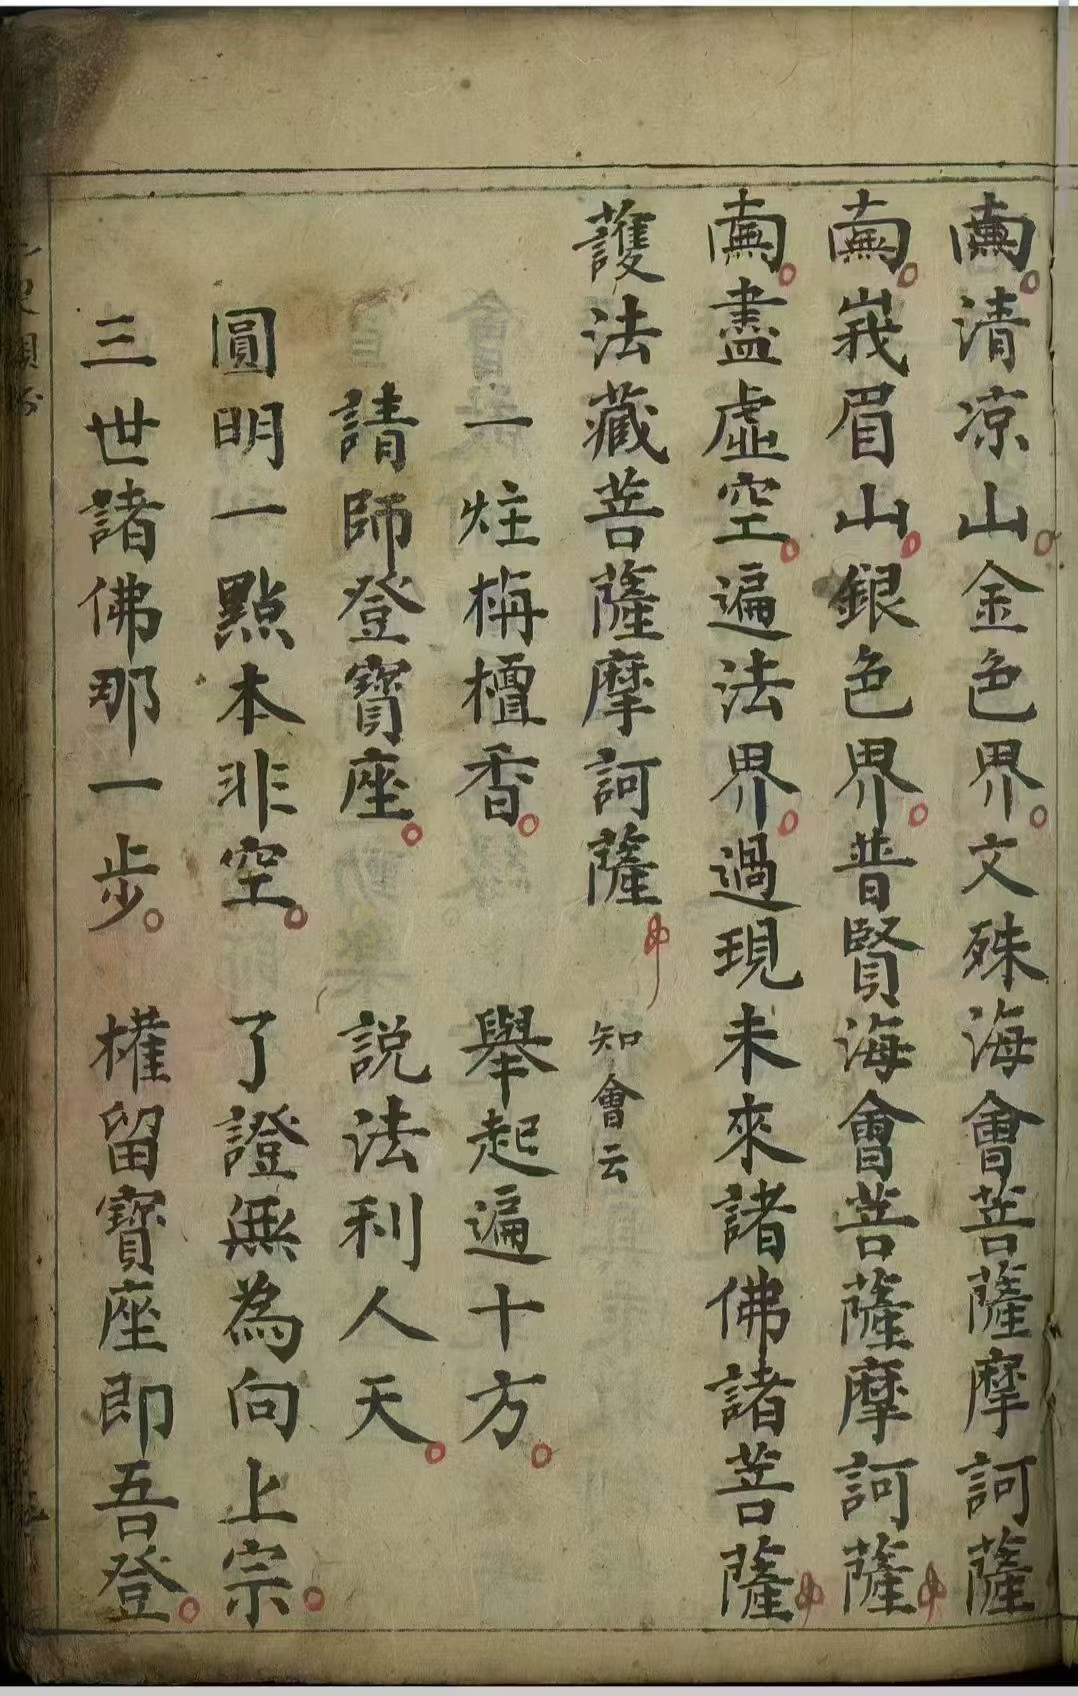 清凉山金色界文殊海會菩薩摩訶薩
峩眉山銀色界普賢海會菩薩摩訶薩
盡虛空遍法界過現未來諸佛諸菩薩
護法藏菩薩摩訶薩 知會云
一炷栴檀香 舉起遍十方
請師登寶座 說法利人天
圓明一點本非空 了證無為向上宗
三世諸佛那一步 權留寶座即吾登